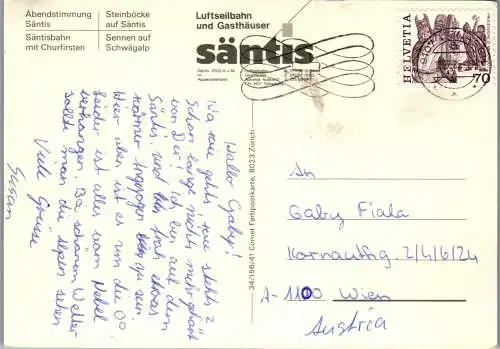 Abendstimmung
Säntis
Säntisbahn
mit Churfirsten
Steinböcke
auf Säntis
Sennen auf
Schwägalp
Luftseilbahn
und Gasthäuser
säntis
HELVETIA
70
Hallo Gaby!
Na wie gehts, wie stehts?
Schon lange nichts mehr gehört
von Dir! Ich bin auf dem
Säntis und frah etwas
wärmer angezogen zu sein.
Hier oben ist es um die 0°
Leider ist alles vom Nebel
verhangen. Bei schönem Wetter
sollte man die Alpen sehen.
Viele Grüsse
Susan
34/156/41 Comet Farbpostkarte, 8023 Zürich
An
Gaby Fiala
Kornauthg. 2/4/6/24
A-1100 Wien
Austria